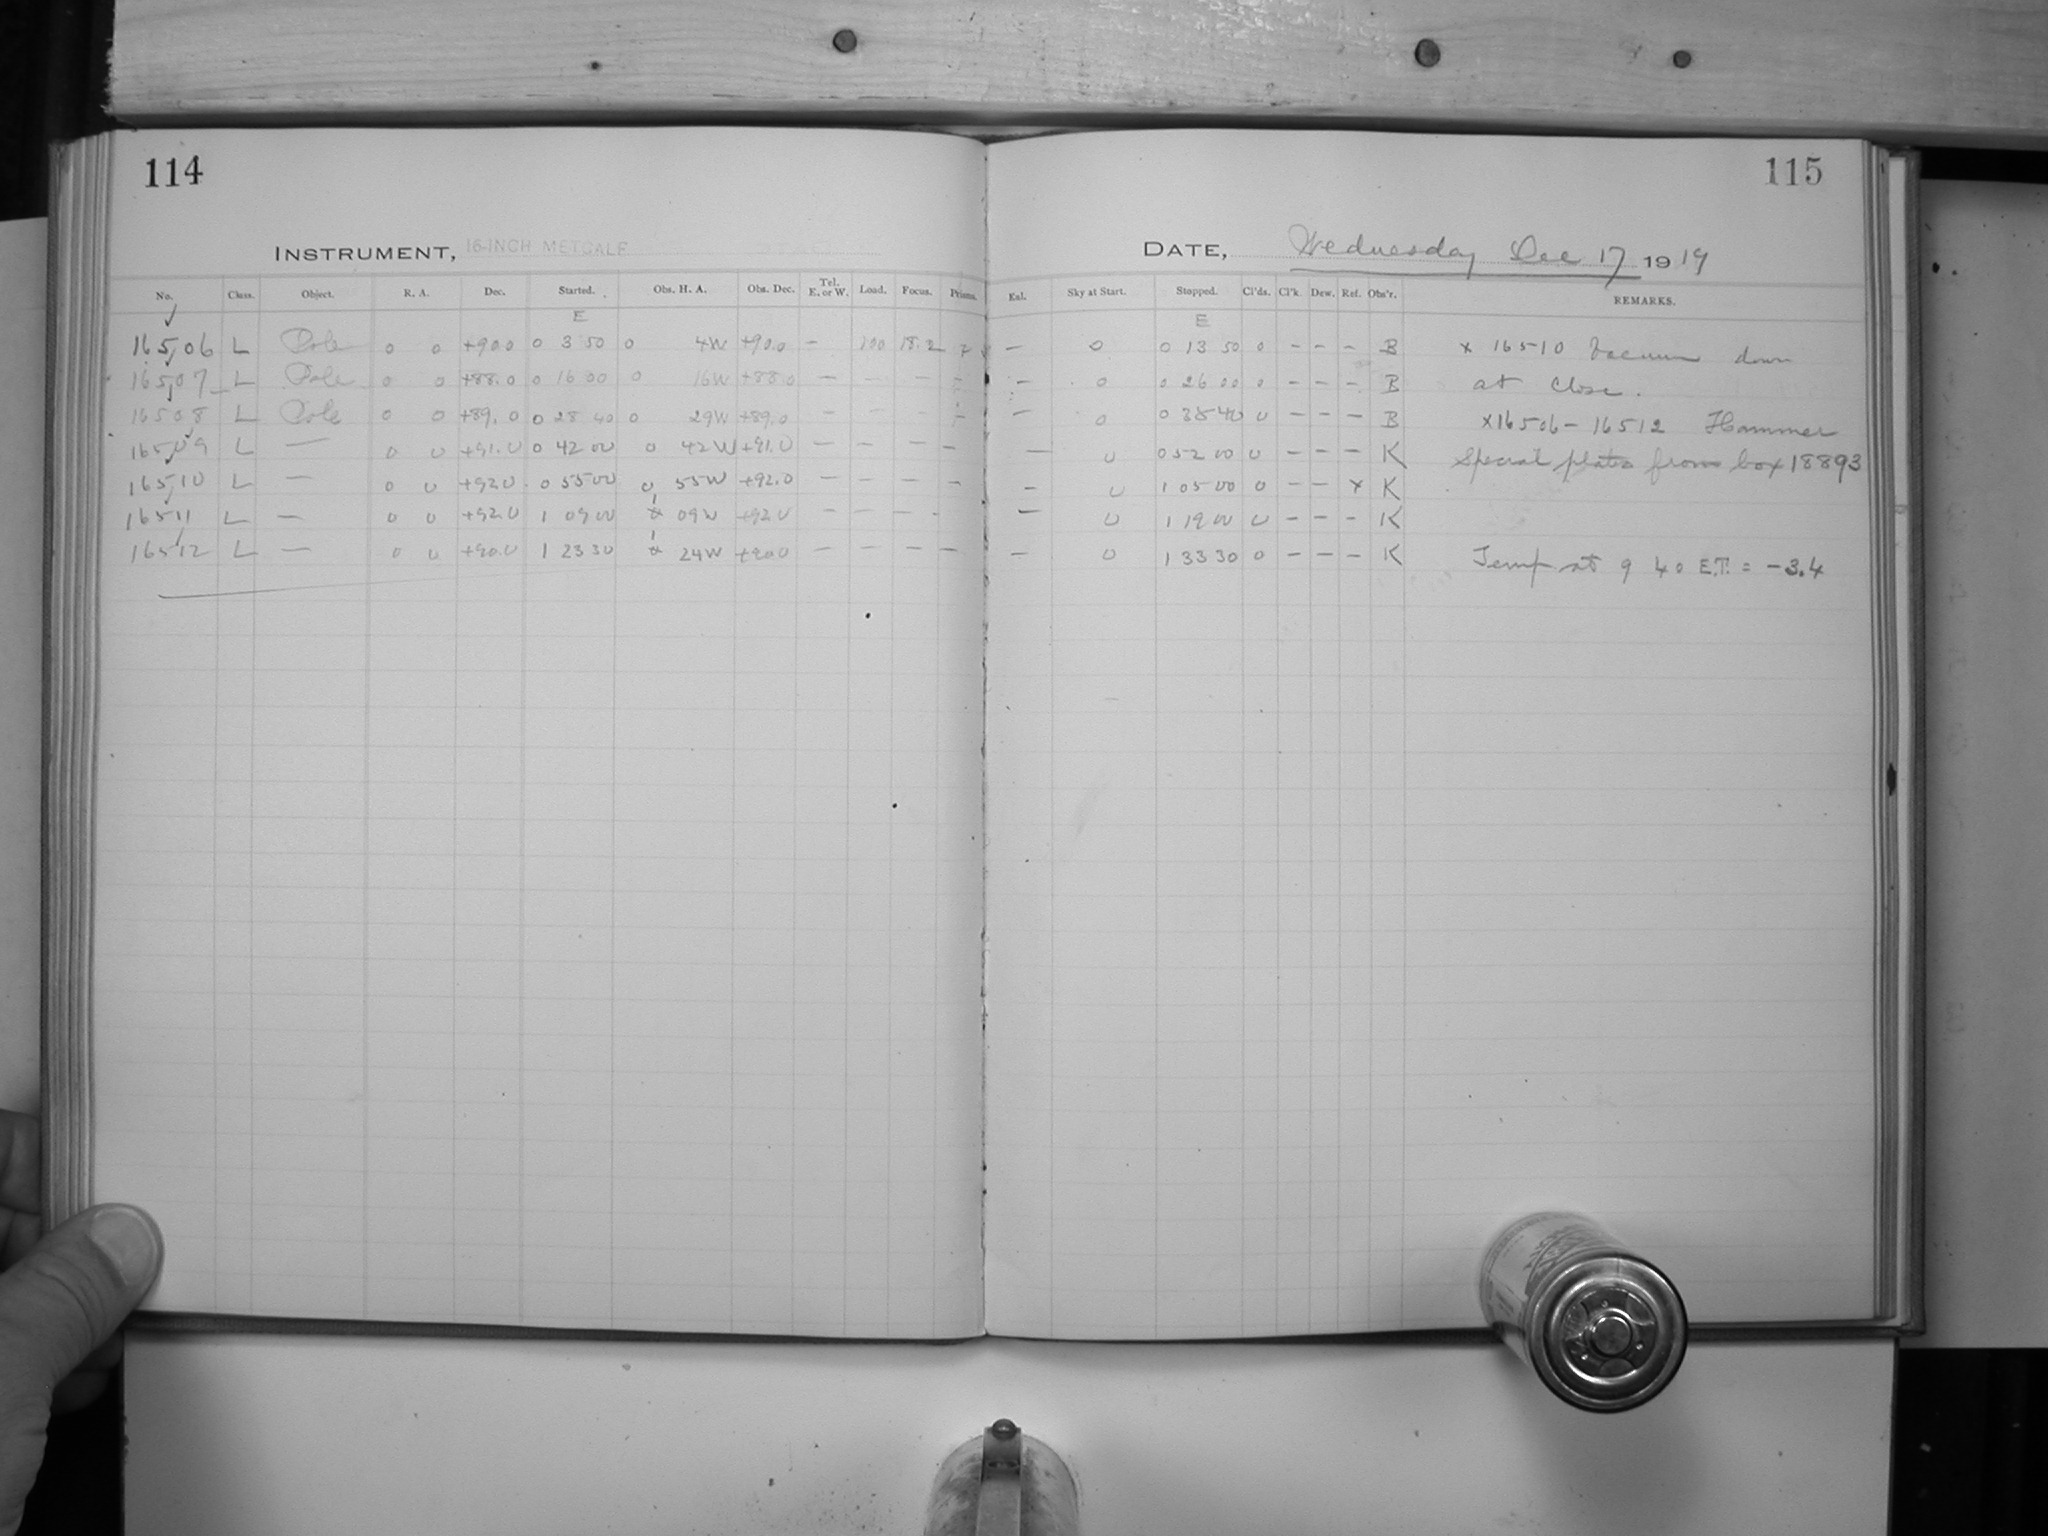 114
115
INSTRUMENT, 16-INCH METCALF
DATE, Wednesday Dec 17 1919
No. Class. Object. R. A. Dec. Started. Obs. H. A. Obs. Dec. Tel. E. or W. Load. Focus. Prisms. Eal. Sky at Start. Stopped. Cl'ds. Cl'k. Dew. Ref. Obs'r. REMARKS.
E E
16506 L Pole 0 0 +90.0 0 3 50 0 4W +90.0 – 100 18.2 – 0 0 13 50 0 – – – B x 16510 Vacuum down
16507 L Pole 0 0 +88.0 0 16 00 0 16W +88.0 – – – – – 0 0 26 00 0 – – – B at close.
16508 L Pole 0 0 +89.0 0 28 40 0 29W +89.0 – – – – – 0 0 38 40 0 – – – B x16506 – 16512 Hammer
16509 L — 0 0 +91.0 0 42 00 0 42W +91.0 – – – – 0 0 52 00 0 – – – K Special plates from box 18893
16510 L — 0 0 +92.0 0 55 00 0 55W +92.0 – – – – – 0 1 05 00 0 – – x K
16511 L — 0 0 +92.0 1 09 00 1 09W +92.0 – – – – – 0 1 19 00 0 – – – K
16512 L — 0 0 +90.0 1 23 30 1 24W +90.0 – – – – – 0 1 33 30 0 – – – K Temp at 9 40 E.T. = -3.4